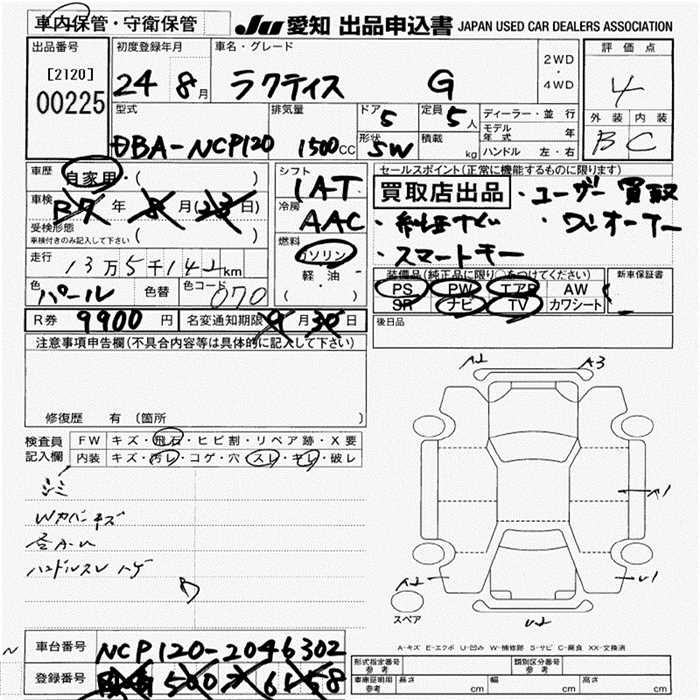 車内保管・守衛保管 JU 愛知 出品申込書 JAPAN USED CAR DEALERS ASSOCIATION
出品番号 初度登録年月 車名・グレード 2WD・4WD 評価点
[2120] 24 8月 ラクティス G 4
00225
型式 排気量 ドア 定員 ディーラー・並行 外装 内装
5 5人 モデル年式 年 B C
DBA-NCP120 1500cc 形状 5W 積載 kg ハンドル 左・右
車歴 自家用・( ) シフト セールスポイント(正常に機能するものに限り)
車検 年 8月(23日) 1A-T 買取店出品 ・ユーザー買取
受検形態 冷房 AAC ・純正ナビ ・ワンオーナー
車検付きのみ記入して下さい ( ) 燃料 ガソリン ・スマートキー
走行 13万5千142km 軽・油 装備品(純正品に限り○をつけてください) 新車保証書
色 パール 色替 色コード 070 ( ) PS PW エアB AW
SR ナビ TV カワシート
R券 9900円 名変通知期限 9月30日 後日品
注意事項申告欄(不具合内容等は具体的に記入して下さい)
修復歴 有 (箇所 )
検査員記入欄 FW キズ・飛石・ヒビ割・リペア跡・X要
内装 キズ・汚レ・コゲ・穴・スレ・キレ・破レ
シミ
Wカバーキズ
ハンドルスレ
A2 A3
A1
A2 U1
スペア U2
A-キズ E-エクボ U-凹み W-補修跡 S-サビ C-腐食 XX-交換済
車台番号 NCP120-2046302
登録番号 500
型式指定番号 参考 類別区分番号 参考
車庫証明用 参考 長さ cm 幅 cm 高さ cm